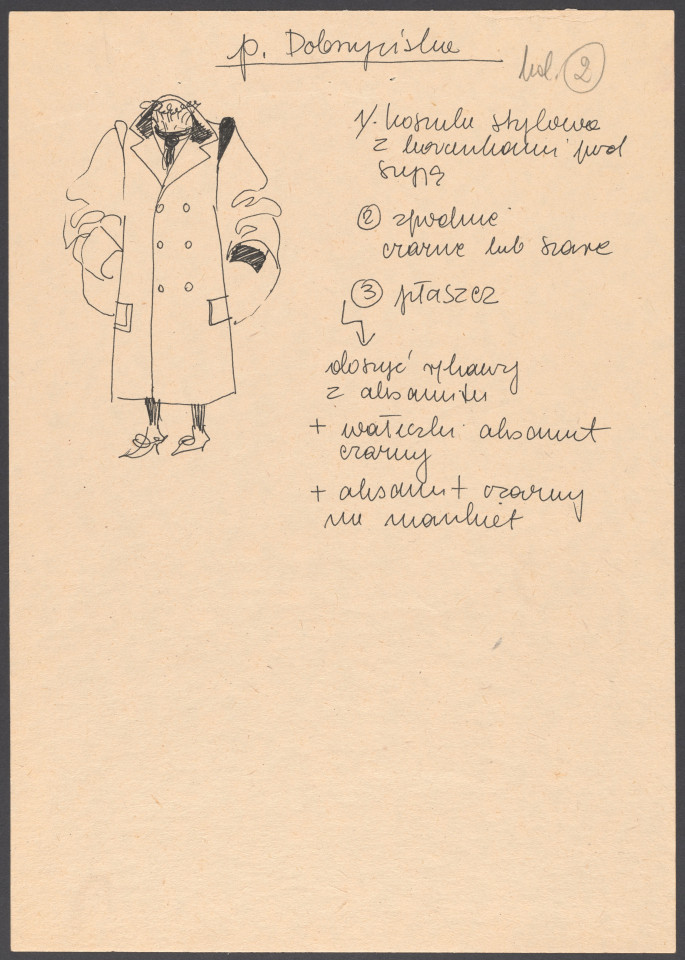 p. Dobrzyńska
kol. 2
1/. koszula stylowa
z koronkami pod
szyją
2 spodnie
czarne lub szare
3 płaszcz
doszyć rękawy
z aksamitu
+ wałeczki aksamit
czarny
+ aksamit czarny
na mankiet